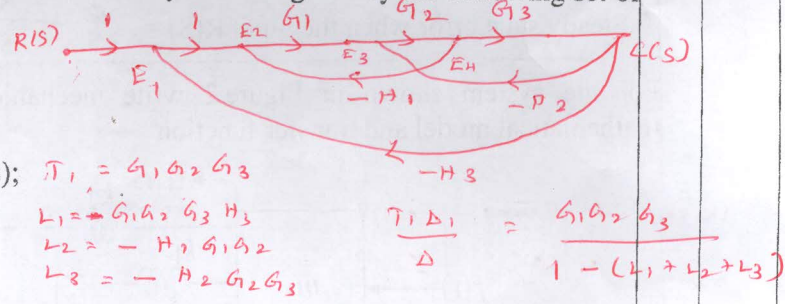 1 1 G1 G2 G3
R(S) E1 E2 E3 E4 C(S)
- H1 - H2
- H3
); T1 = G1 G2 G3
L1 = - G1 G2 G3 H3
L2 = - H1 G1 G2
L3 = - H2 G2 G3
T1 Δ1 / Δ = G1 G2 G3 / 1 - (L1 + L2 + L3)